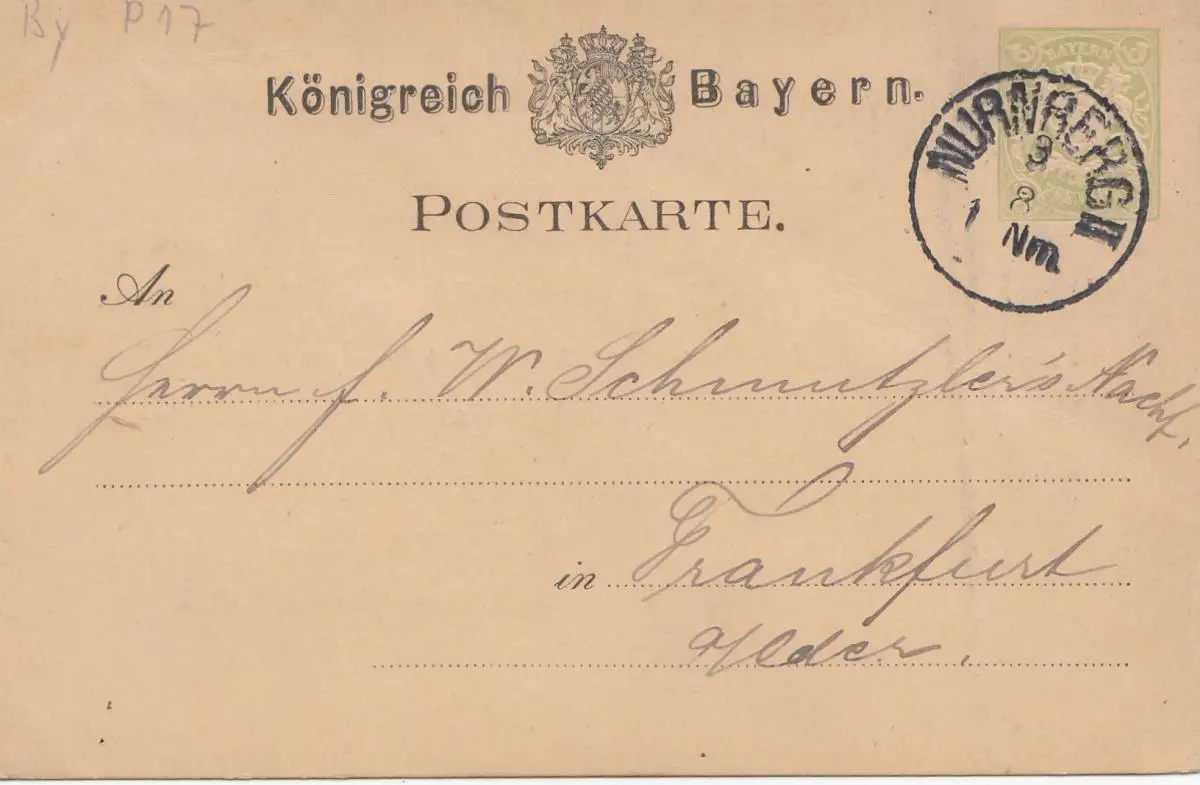 By P17
Königreich Bayern.
3 BAYERN 3
NÜRNBERG II
9
8
1 Nm
POSTKARTE.
An
Herrn F. W. Schmutzler's Nachf.
in Frankfurt
a/Oder.